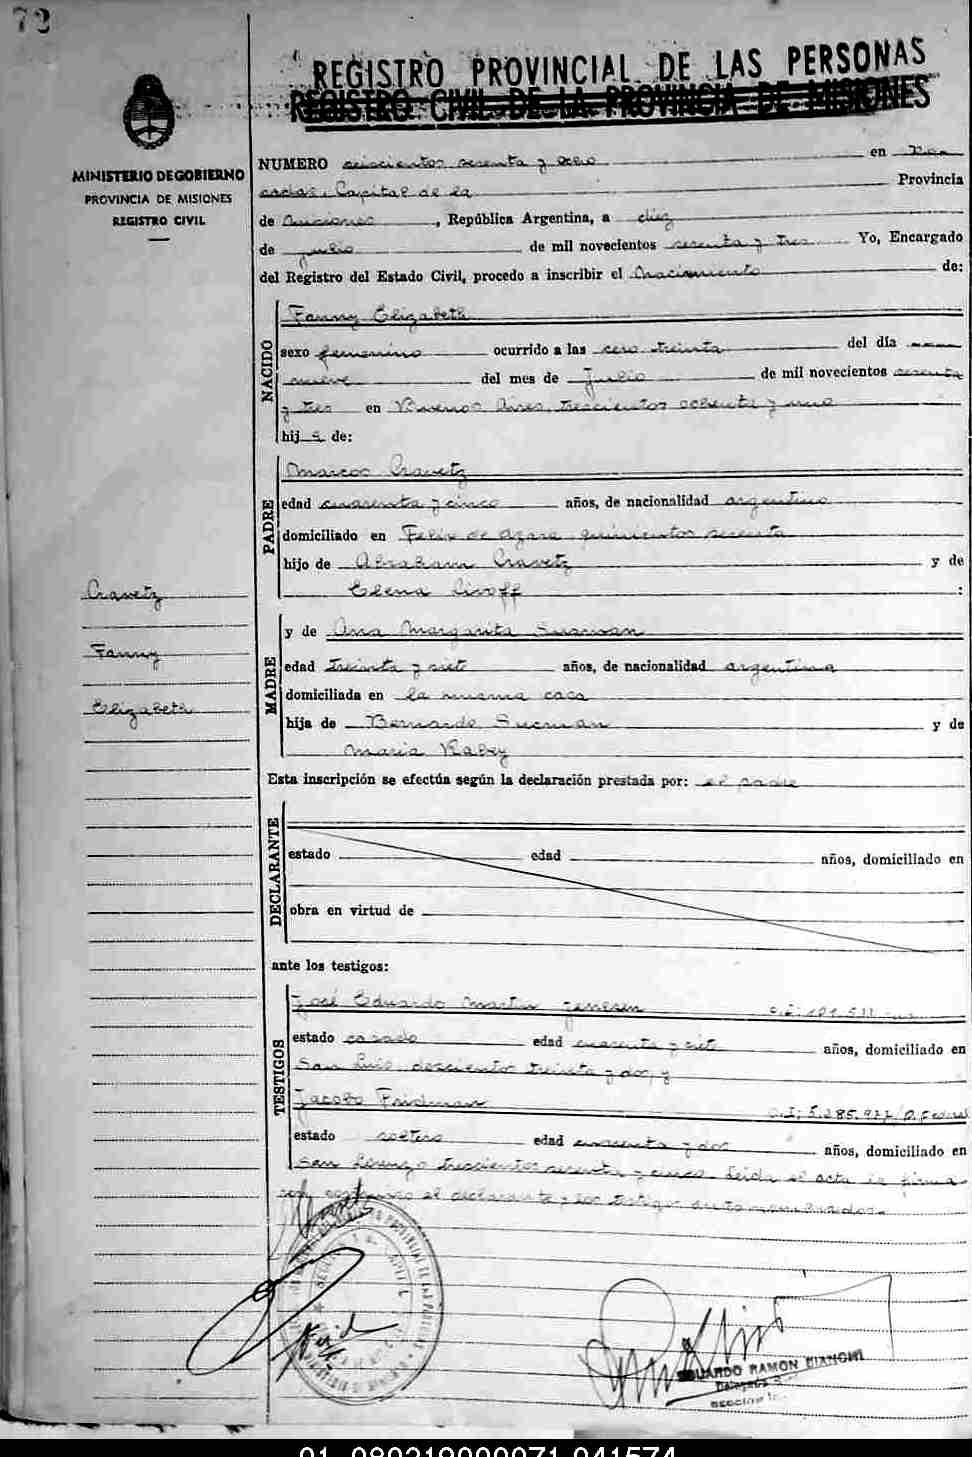 72
REGISTRO PROVINCIAL DE LAS PERSONAS
REGISTRO CIVIL DE LA PROVINCIA DE MISIONES
MINISTERIO DE GOBIERNO
PROVINCIA DE MISIONES
REGISTRO CIVIL
NUMERO seiscientos sesenta y ocho en Po-
sadas, Capital de la Provincia
de Misiones, República Argentina, a diez
de julio de mil novecientos sesenta y tres Yo, Encargado
del Registro del Estado Civil, procedo a inscribir el Nacimiento de:
NACIDO
Fanny Elizabeth
sexo femenino ocurrido a las cero treinta del día
nueve del mes de Julio de mil novecientos sesenta
y tres en Buenos Aires, trescientos ochenta y uno
hij a de:
PADRE
Marcos Cravetz
edad cuarenta y cinco años, de nacionalidad argentino
domiciliado en Felix de Azara quinientos sesenta
hijo de Abraham Cravetz y de
Elena :
Cravetz
Fanny
Elizabeth
MADRE
y de Ana Margarita Sucman
edad treinta y siete años, de nacionalidad argentina
domiciliada en la misma casa
hija de Bernardo Sucman y de
Maria Rabey
Esta inscripción se efectúa según la declaración prestada por: el padre
DECLARANTE
estado edad años, domiciliado en
obra en virtud de
ante los testigos:
TESTIGOS
José Eduardo Martin Jensen
estado casado edad cuarenta y siete años, domiciliado en
San Luis, doscientos treinta y dos, y
Jacobo Fridman C.I; 5.285.977/P. Federal
estado soltero edad cincuenta y dos años, domiciliado en
San Lorenzo trescientos sesenta y cinco. Leida el acta la firman
con conmigo el declarante y los testigos antes nombrados.-
EDUARDO RAMON BIANCHI
01 080219000071 041574